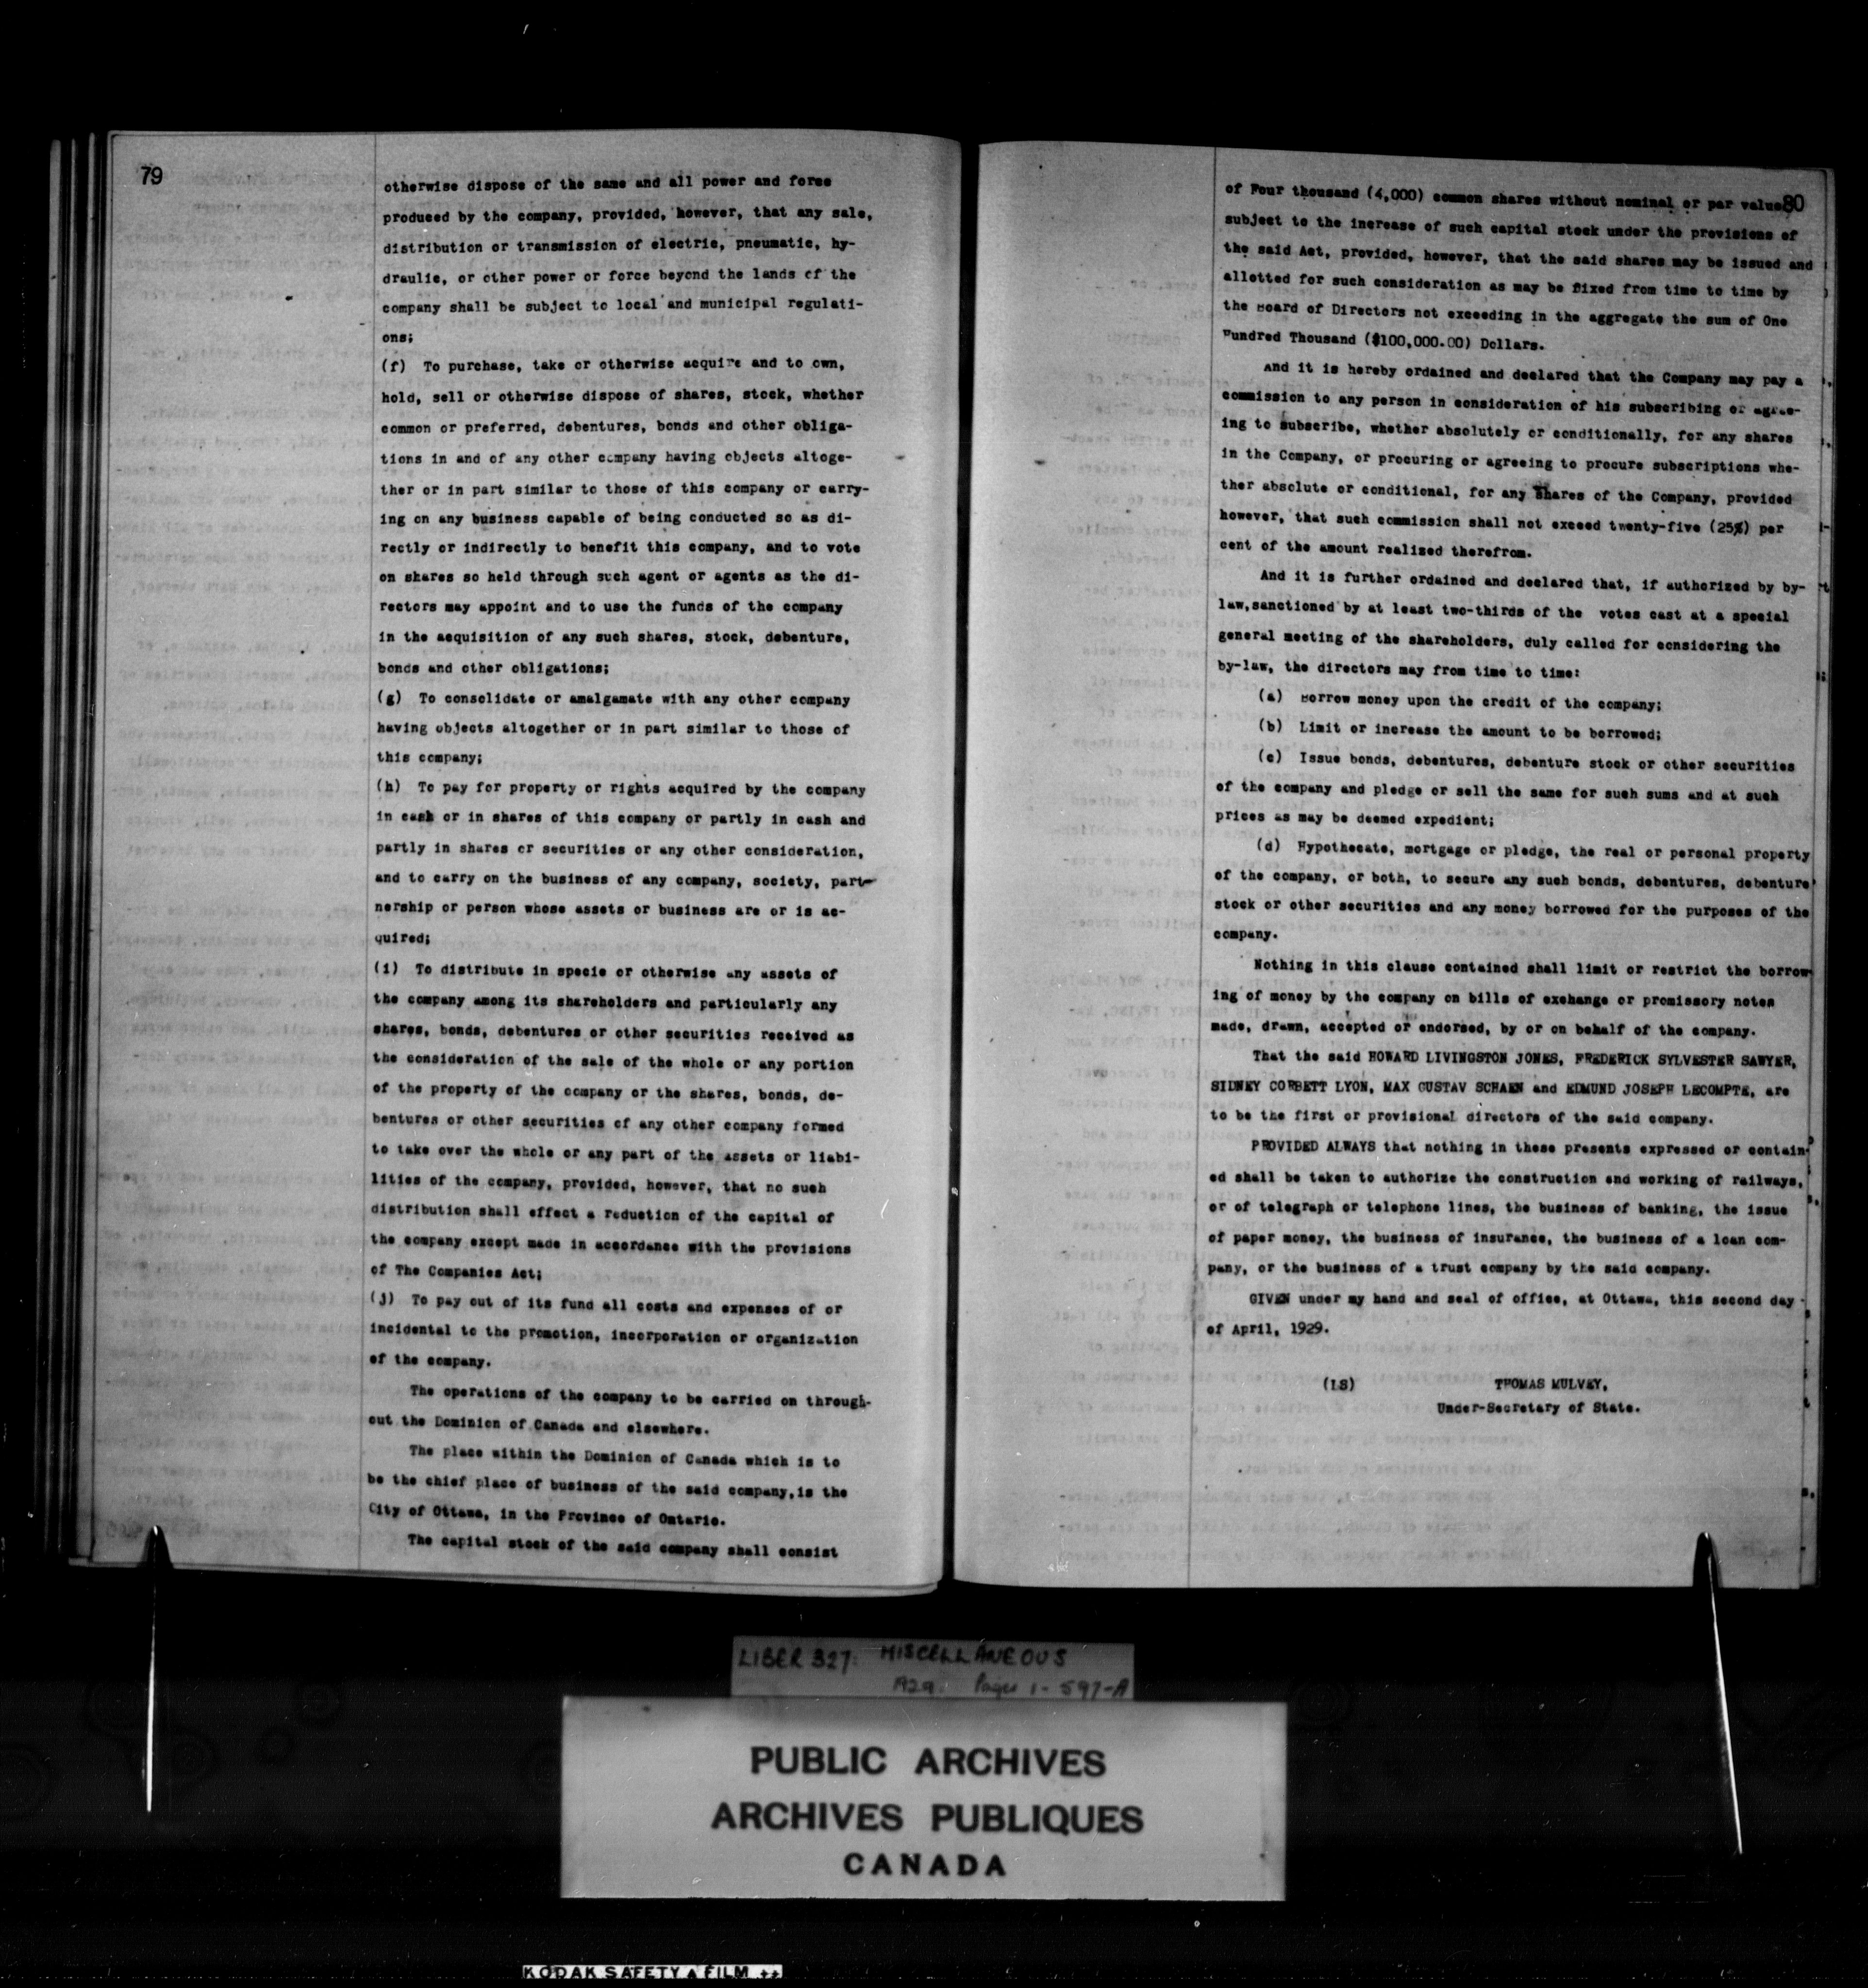 79
otherwise dispose of the same and all power and force
produced by the company, provided, however, that any sale,
distribution or transmission of electric, pneumatic, hy-
draulic, or other power or force beyond the lands of the
company shall be subject to local and municipal regulati-
ons;
(f) To purchase, take or otherwise acquire and to own,
hold, sell or otherwise dispose of shares, stock, whether
common or preferred, debentures, bonds and other obliga-
tions in and of any other company having objects altoge-
ther or in part similar to those of this company or carry-
ing on any business capable of being conducted so as di-
rectly or indirectly to benefit this company, and to vote
on shares so held through such agent or agents as the di-
rectors may appoint and to use the funds of the company
in the acquisition of any such shares, stock, debenture,
bonds and other obligations;
(g) To consolidate or amalgamate with any other company
having objects altogether or in part similar to those of
this company;
(h) To pay for property or rights acquired by the company
in cash or in shares of this company or partly in cash and
partly in shares or securities or any other consideration,
and to carry on the business of any company, society, part-
nership or person whose assets or business are or is ac-
quired;
(i) To distribute in specie or otherwise any assets of
the company among its shareholders and particularly any
shares, bonds, debentures or other securities received as
the consideration of the sale of the whole or any portion
of the property of the company or the shares, bonds, de-
bentures or other securities of any other company formed
to take over the whole or any part of the assets or liabi-
lities of the company, provided, however, that no such
distribution shall effect a reduction of the capital of
the company except made in accordance with the provisions
of The Companies Act;
(j) To pay out of its fund all costs and expenses of or
incidental to the promotion, incorporation or organization
of the company.
The operations of the company to be carried on through-
out the Dominion of Canada and elsewhere.
The place within the Dominion of Canada which is to
be the chief place of business of the said company, is the
City of Ottawa, in the Province of Ontario.
The capital stock of the said company shall consist
80
of Four thousand (4,000) common shares without nominal or par value,
subject to the increase of such capital stock under the provisions of
the said Act, provided, however, that the said shares may be issued and
allotted for such consideration as may be fixed from time to time by
the Board of Directors not exceeding in the aggregate the sum of One
Hundred Thousand ($100,000.00) Dollars.
And it is hereby ordained and declared that the Company may pay a
commission to any person in consideration of his subscribing or agree-
ing to subscribe, whether absolutely or conditionally, for any shares
in the Company, or procuring or agreeing to procure subscriptions whe-
ther absolute or conditional, for any shares of the Company, provided
however, that such commission shall not exceed twenty-five (25%) per
cent of the amount realized therefrom.
And it is further ordained and declared that, if authorized by by-
law,sanctioned by at least two-thirds of the votes cast at a special
general meeting of the shareholders, duly called for considering the
by-law, the directors may from time to time:
(a) Borrow money upon the credit of the company;
(b) Limit or increase the amount to be borrowed;
(c) Issue bonds, debentures, debenture stock or other securities
of the company and pledge or sell the same for such sums and at such
prices as may be deemed expedient;
(d) Hypothecate, mortgage or pledge, the real or personal property
of the company, or both, to secure any such bonds, debentures, debenture
stock or other securities and any money borrowed for the purposes of the
company.
Nothing in this clause contained shall limit or restrict the borrow-
ing of money by the company on bills of exchange or promissory notes
made, drawn, accepted or endorsed, by or on behalf of the company.
That the said HOWARD LIVINGSTON JONES, FREDERICK SYLVESTER SAWYER,
SIDNEY CORBETT LYON, MAX GUSTAV SCHAEN and EDMUND JOSEPH LECOMPTE, are
to be the first or provisional directors of the said company.
PROVIDED ALWAYS that nothing in these presents expressed or contain-
ed shall be taken to authorize the construction and working of railways,
or of telegraph or telephone lines, the business of banking, the issue
of paper money, the business of insurance, the business of a loan com-
pany, or the business of a trust company by the said company.
GIVEN under my hand and seal of office, at Ottawa, this second day
of April, 1929.
(LS) THOMAS MULVEY,
Under-Secretary of State.
LIBER 327: MISCELLANEOUS
1929. Pages 1-597-A
PUBLIC ARCHIVES
ARCHIVES PUBLIQUES
CANADA
KODAK SAFETY FILM